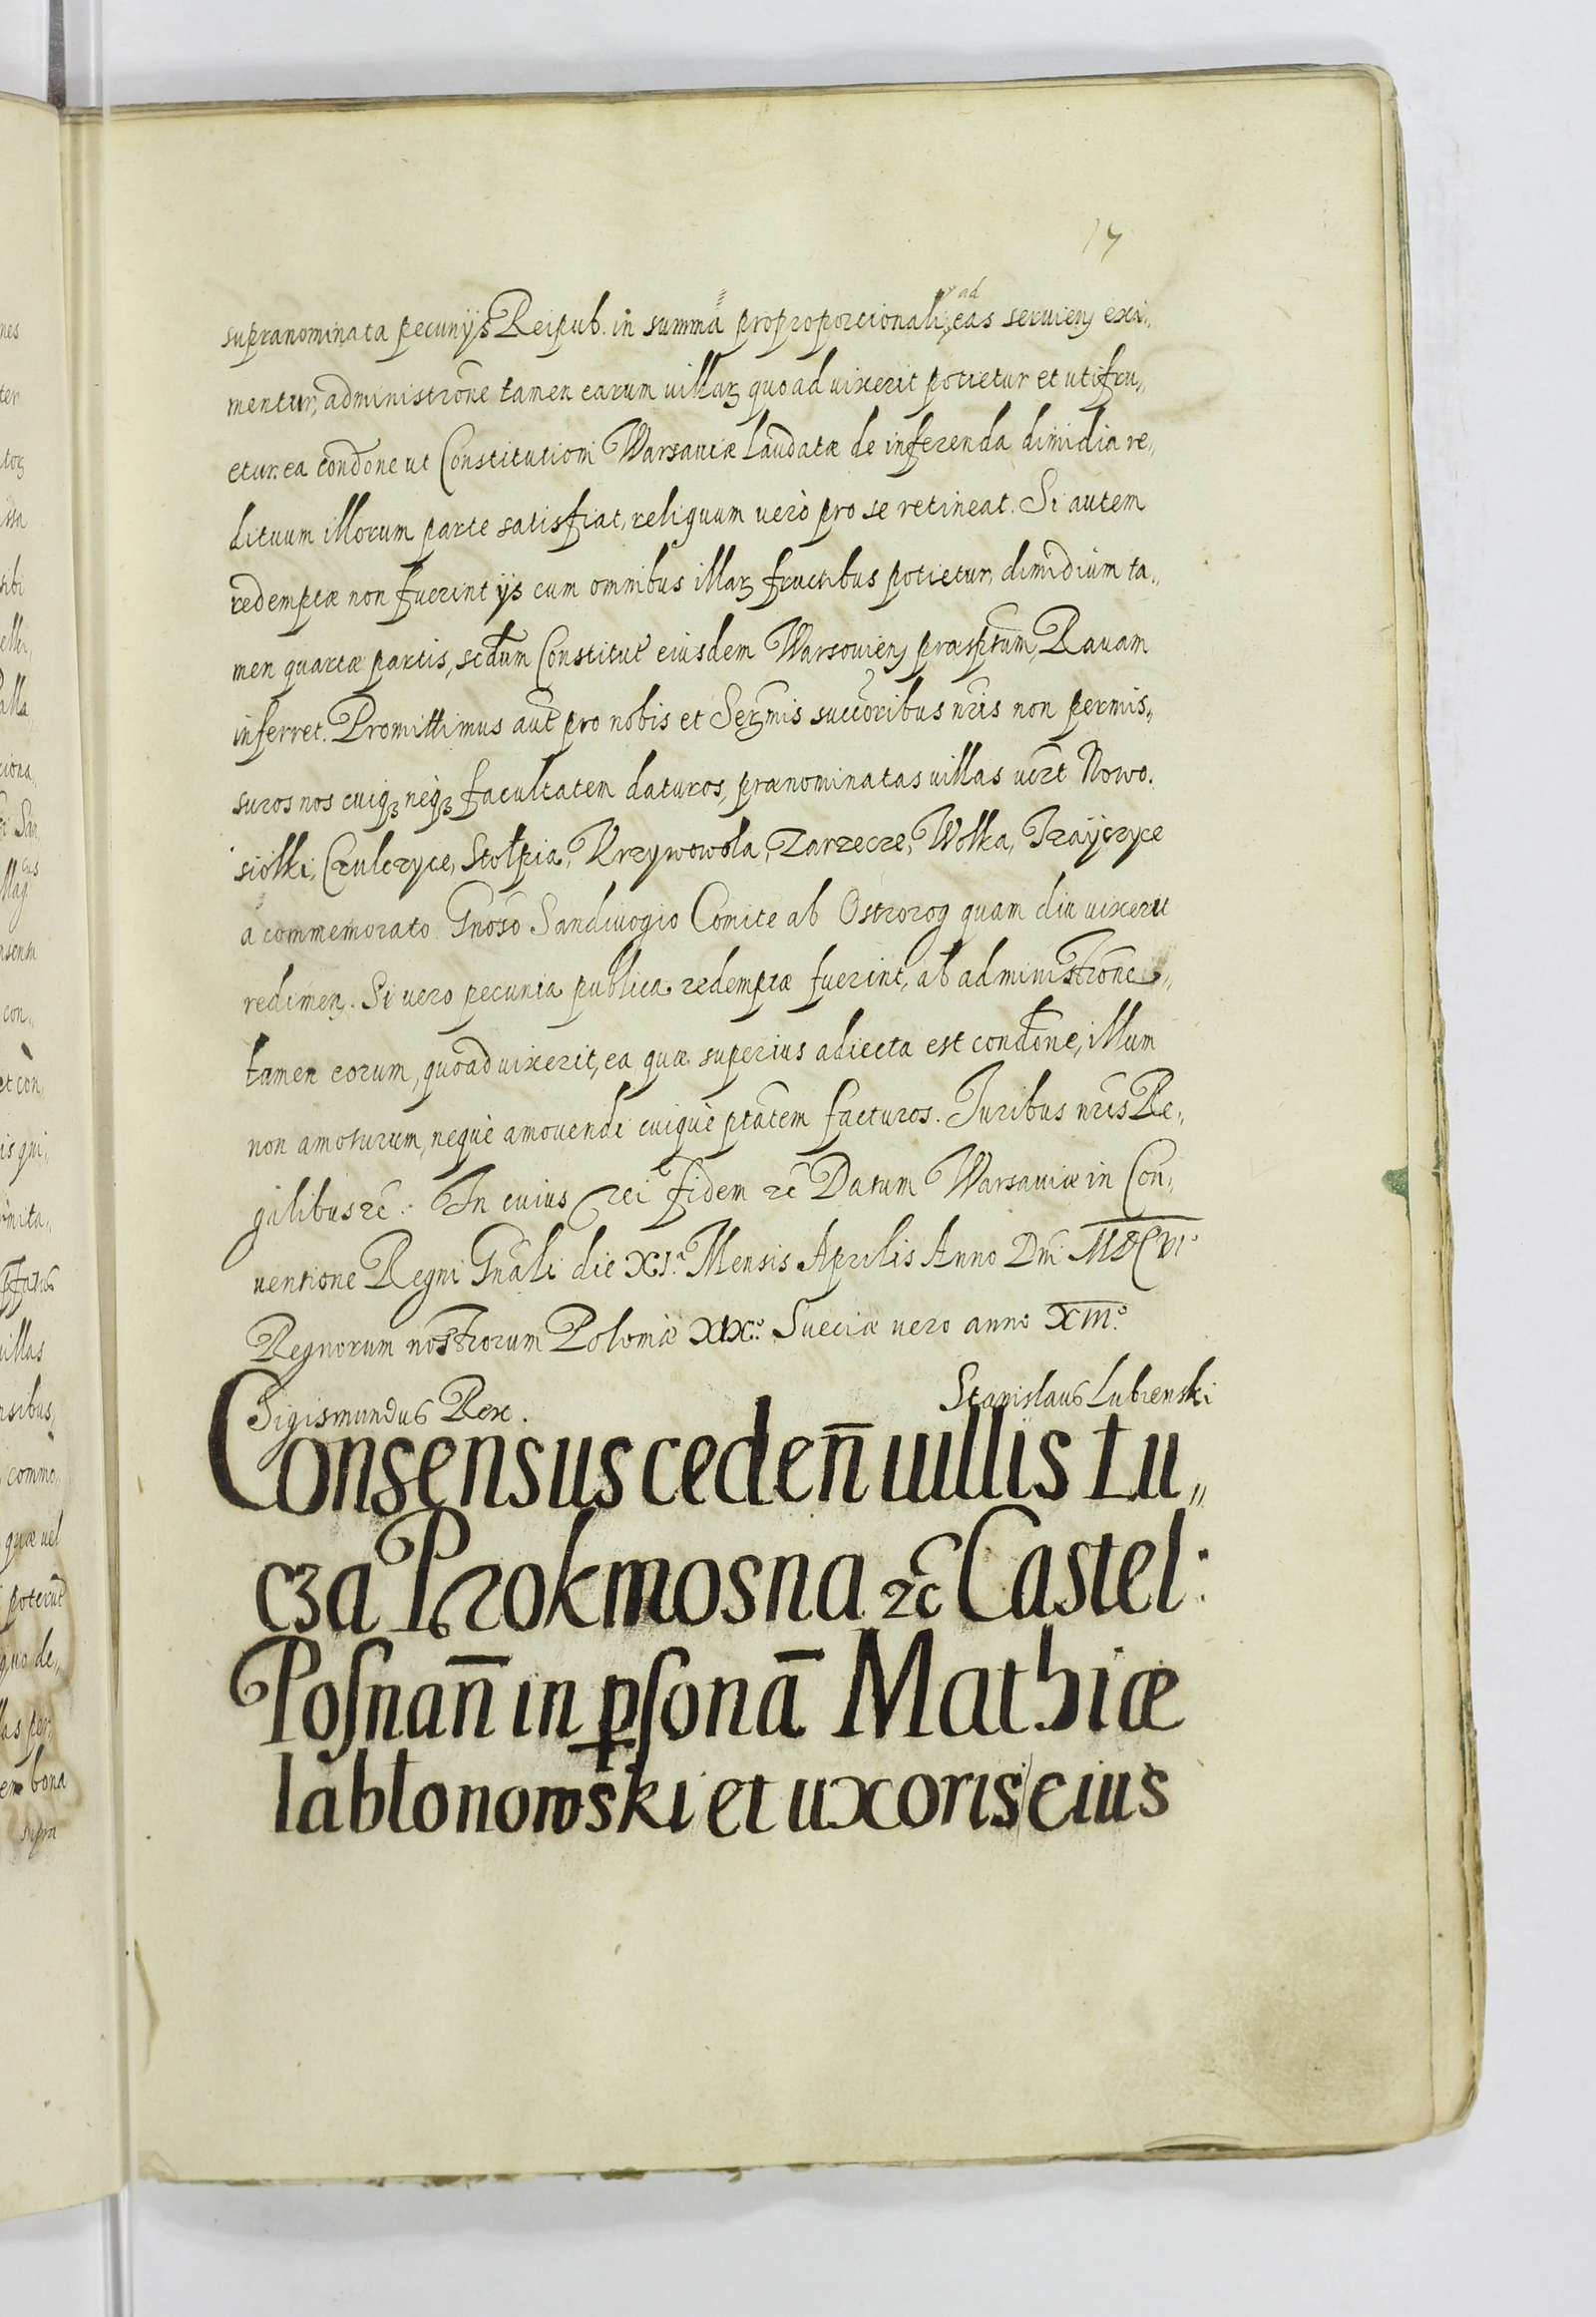 17
supranominata pecunijs Reipub. in summa proproporcionali, ad eas seruien exi„
mentur, administrone tamen earum villarȝ quoad uixerit potietur et utifru„
etur, ea condone ut Constitutioni Warsauiæ laudatæ de inferenda dimidia re„
dituum illorum parte satisfiat, reliquum uerò pro se retineat. Si autem
redemptæ non fuerint ijs cum omnibus illarȝ fructibus potietur, dimidium ta„
men quartæ partis, scdum Constitut eiusdem Warsouien præscptum, Rauam
inferret. Promittimus aut pro nobis et Serȝmis succoribus nris non permis„
suros nos cuiqȝ neqȝ facultatem daturos, prænominatas uillas vczt Nowo„
siołki, Czulczyce, Stołpia, Krzywowola, Zarzecze, Wolka, Trayczyce
à commemorato Gnoso Sandiuogio Comite ab Ostrorog quam diu uixerit
redimen. Si uero pecunia publica redemptæ fuerint, ab administrone„
tamen eorum, quoad uixerit, ea quæ superius adiecta est condone, illum
non amoturum, neque amouendi cuique ptatem facturos. Iuribus nris Re„
galibus etc. In cuius rei fidem etc Datum Warsauiæ in Con„
uentione Regni Gnali die XI.ª Mensis Aprilis Anno Dni MDCVIº
Regnorum nostrorum Poloniæ XIX.º Sueciæ uero anno XIII.º
Sigismundus Rex. Stanislaus Lubienski
Consensus ceden̄ uillis Łu„
cza Prokmosna etc Castel:
Poſnan̄ in pſonā Mathiæ
Iabłonowski et uxoris eius